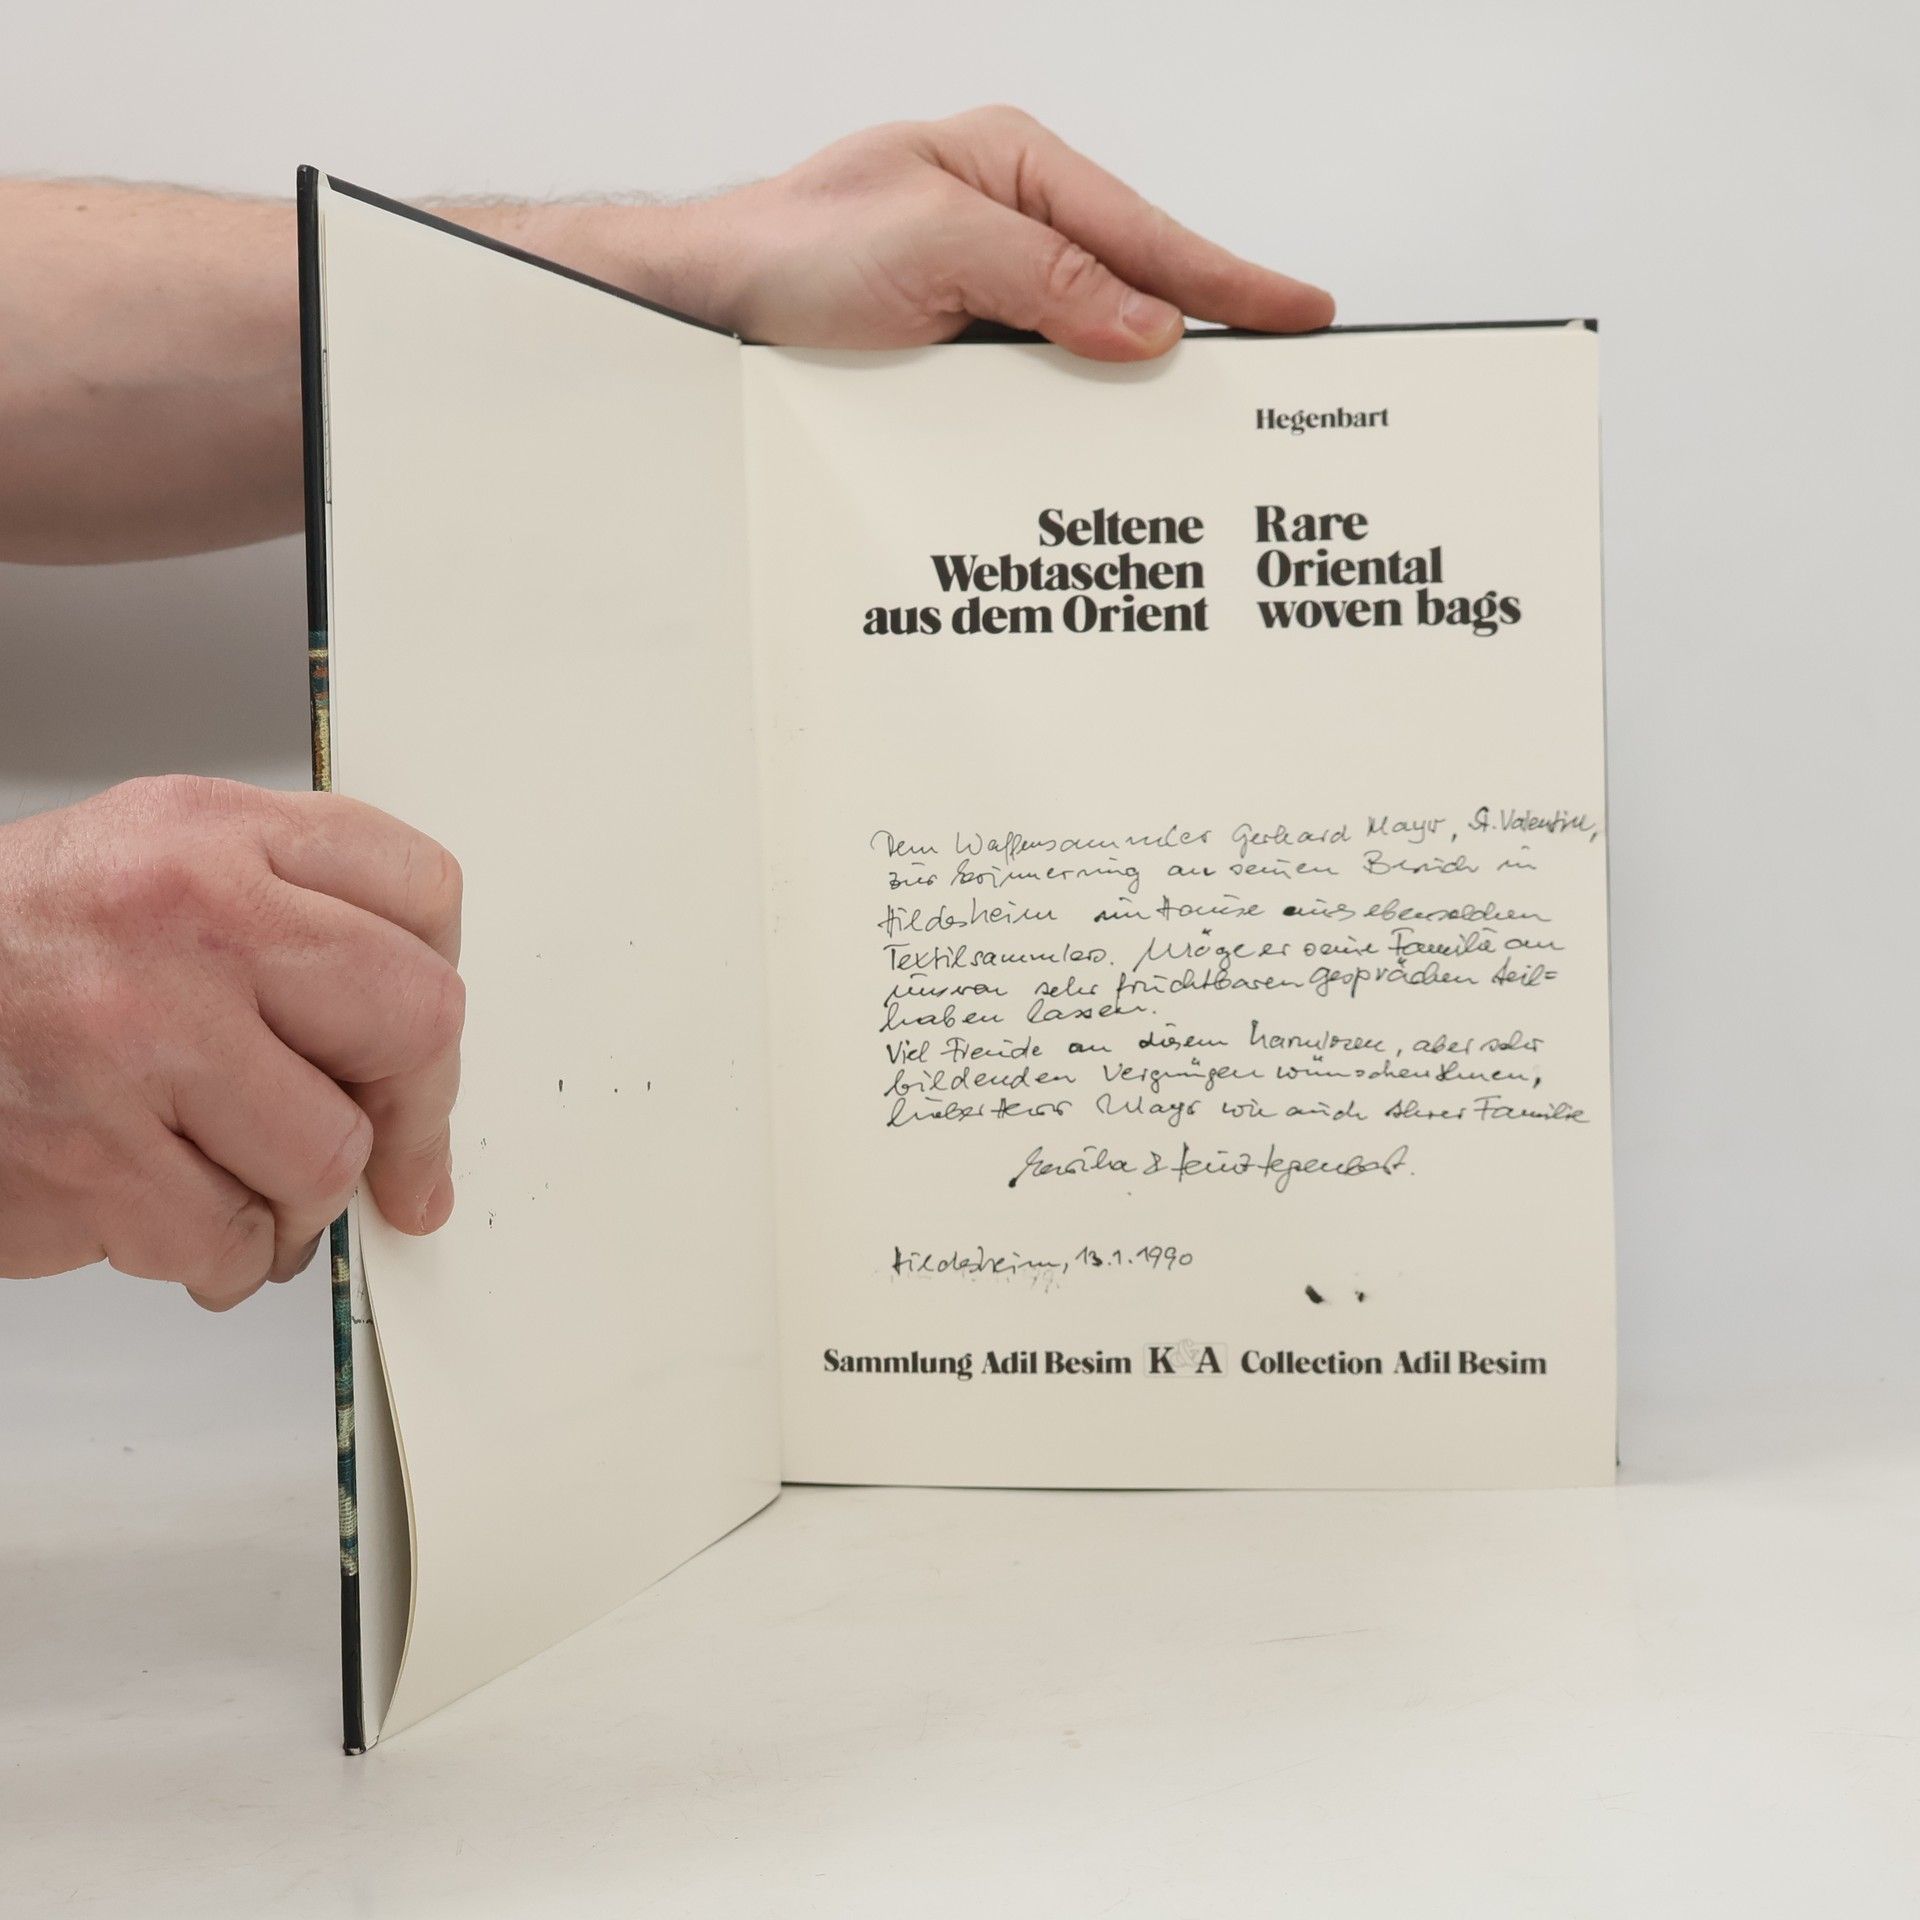 Hegenbart
Seltene
Webtaschen
aus dem Orient
Rare
Oriental
woven bags
Dem Waffensammler Gerhard Mayr, St. Valentin,
zur Erinnerung an seinen Besuch in
Hildesheim im Hause eines ebensolchen
Textilsammlers. Möge er seine Familie an
unseren sehr fruchtbaren Gesprächen teil=
haben lassen.
Viel Freude an diesem harmlosen, aber sehr
bildenden Vergnügen wünschen Ihnen,
lieber Herr Mayr wie auch Ihrer Familie
& Heinz Hegenbart.
Hildesheim, 13.1.1990
Sammlung Adil Besim K&A Collection Adil Besim